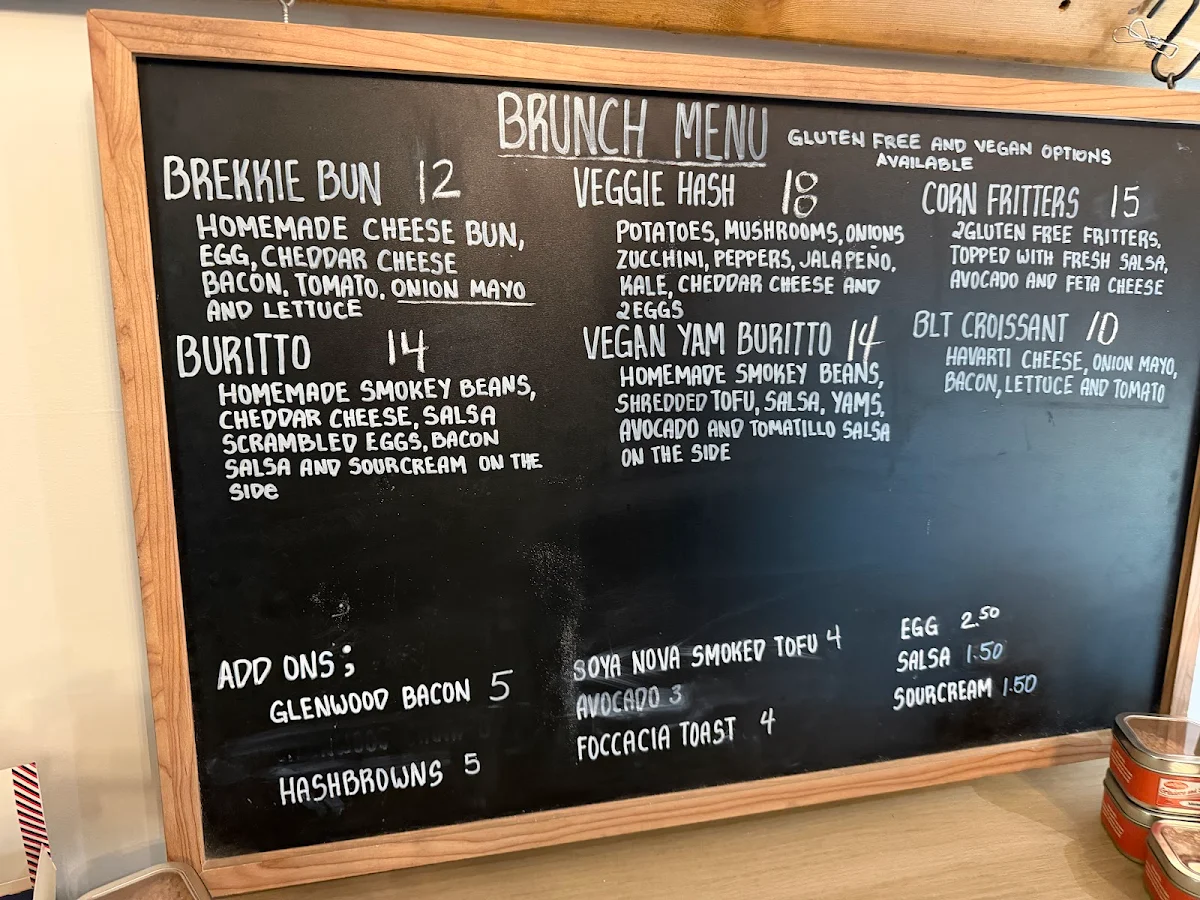 BRUNCH MENU
GLUTEN FREE AND VEGAN OPTIONS
AVAILABLE
BREKKIE BUN 12
HOMEMADE CHEESE BUN,
EGG, CHEDDAR CHEESE
BACON, TOMATO, ONION MAYO
AND LETTUCE
BURITTO 14
HOMEMADE SMOKEY BEANS,
CHEDDAR CHEESE, SALSA
SCRAMBLED EGGS, BACON
SALSA AND SOURCREAM ON THE
SIDE
VEGGIE HASH 18
POTATOES, MUSHROOMS, ONIONS
ZUCCHINI, PEPPERS, JALAPEÑO,
KALE, CHEDDAR CHEESE AND
2EGGS
VEGAN YAM BURITTO 14
HOMEMADE SMOKEY BEANS,
SHREDDED TOFU, SALSA, YAMS,
AVOCADO AND TOMATILLO SALSA
ON THE SIDE
CORN FRITTERS 15
2GLUTEN FREE FRITTERS,
TOPPED WITH FRESH SALSA,
AVOCADO AND FETA CHEESE
BLT CROISSANT 10
HAVARTI CHEESE, ONION MAYO,
BACON, LETTUCE AND TOMATO
ADD ONS;
GLENWOOD BACON 5
HASHBROWNS 5
SOYA NOVA SMOKED TOFU 4
AVOCADO 3
FOCCACIA TOAST 4
EGG 2.50
SALSA 1.50
SOURCREAM 1.50